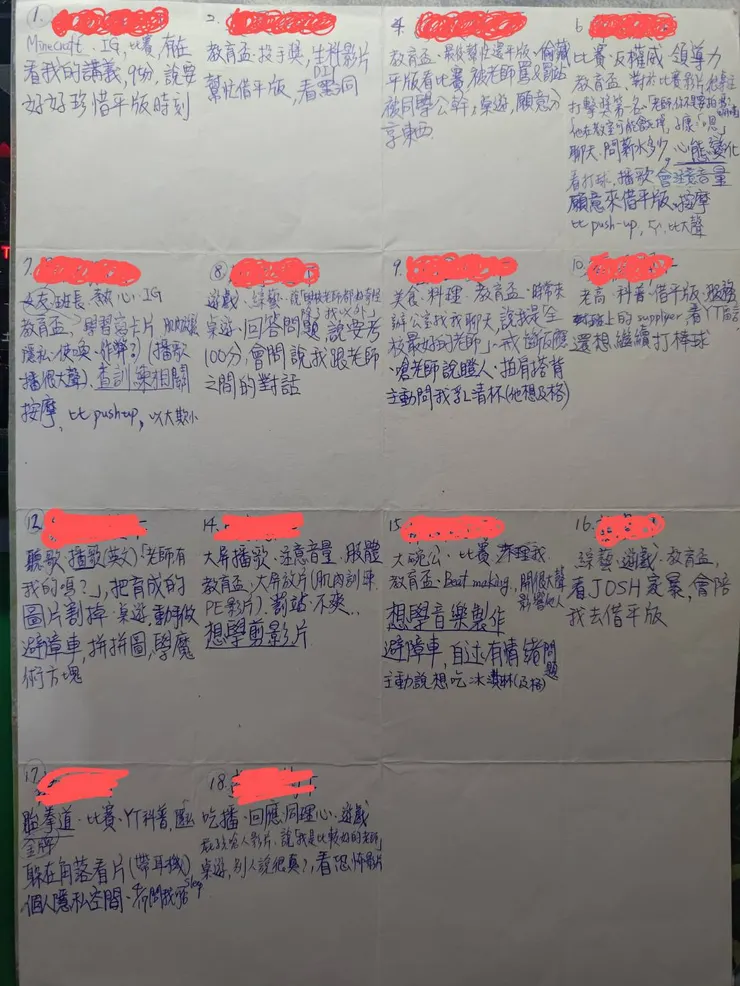 1.
Minecraft、IG、比賽,有在
看我的講義,9分,說要
好好珍惜平版時刻
2.
教育盃、投手獎,生科影片
DIY
幫忙借平版,看黑洞
4.
教育盃、最後幫忙還平版、偷藏
平版看比賽,被老師罵&罰站
被同學公幹,桌遊,願意分
享東西
6.
比賽、反權威 領導力
教育盃、對於比賽影片
打擊獎第一名「老師你不要拍我」
他在教室可能會
聊天、問薪水多少,心態變化
看打球、播歌 會注意音量
願意來借平版、按摩
比 push-up, 比大聲
7.
女友 班長、熱心、IG
教育盃、學習寫卡片
隱私、使喚、作弊?)(播歌
播很大聲)、查訓練相關
按摩,比 pushup,以大欺小
8.
遊戲、綜藝、說
桌遊、回答問題,說要考
100分,會問說我跟老師
之間的對話
9.
美食、料理、教育盃、時常來
辦公室找我聊天,說我是「全
校最好的老師」、戒
、嗆老師說瞪人、拍肩搭背
主動問我乳清杯(他想及格)
10.
老高、科普、借平版、服務
看YT
還想繼續打棒球
12.
聽歌、播歌(英文)、「老師有
我的嗎?」,把育成的
圖片割掉、桌遊,動手做
避障車,拼拼圖,學魔
術方塊
14.
大屏播歌、注意音量、服體
教育盃、大屏放片(肌肉訓練
PE影片)、罰站、不爽..
想學剪影片
15.
大碗公、比賽、不理我
教育盃、Beat making、開很大聲
影響他人
想學音樂製作
避障車,自述有情緒問題
主動說想吃冰淇淋(及格)
16.
綜藝、遊戲、教育盃,
看JOSH家暴,會陪
我去借平版
17.
跆拳道、比賽、YT科普、隱私
金牌
躲在角落看片(帶耳機)
個人隱私空間、
sleep
18.
吃播、回應同理心、遊戲
影片,說「我是比較好的老師」
桌遊,別人說很臭?,看恐怖影片